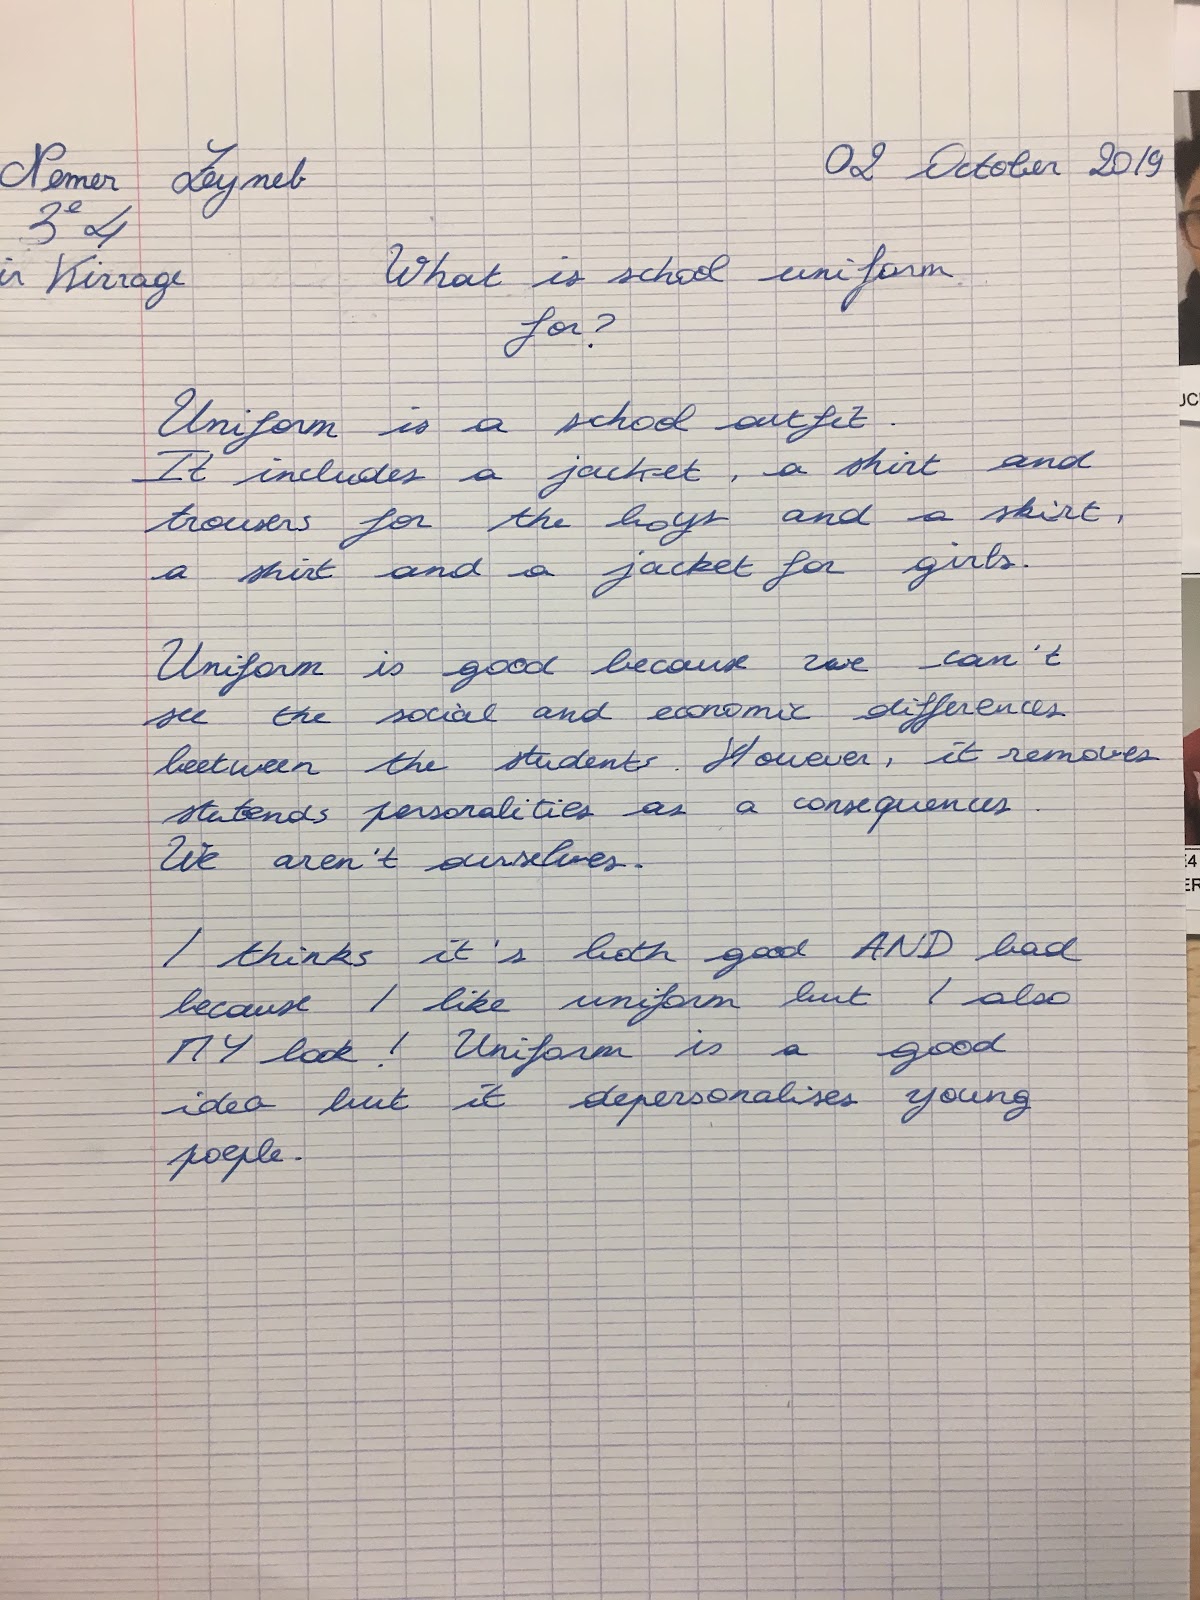 Nemer Zeyneb
02 October 2019
3e 4
ir Kirrage
What is school uniform
for?
Uniform is a school outfit.
It includes a jacket, a shirt and
trousers for the boys and a skirt,
a shirt and a jacket for girls.
Uniform is good because we can't
see the social and economic differences
beetween the students. However, it removes
stutends personalities as a consequences.
We aren't ourselves.
I thinks it's both good AND bad
because I like uniform but I also
MY look! Uniform is a good
idea but it depersonalises young
poeple.
JC
E4
ER